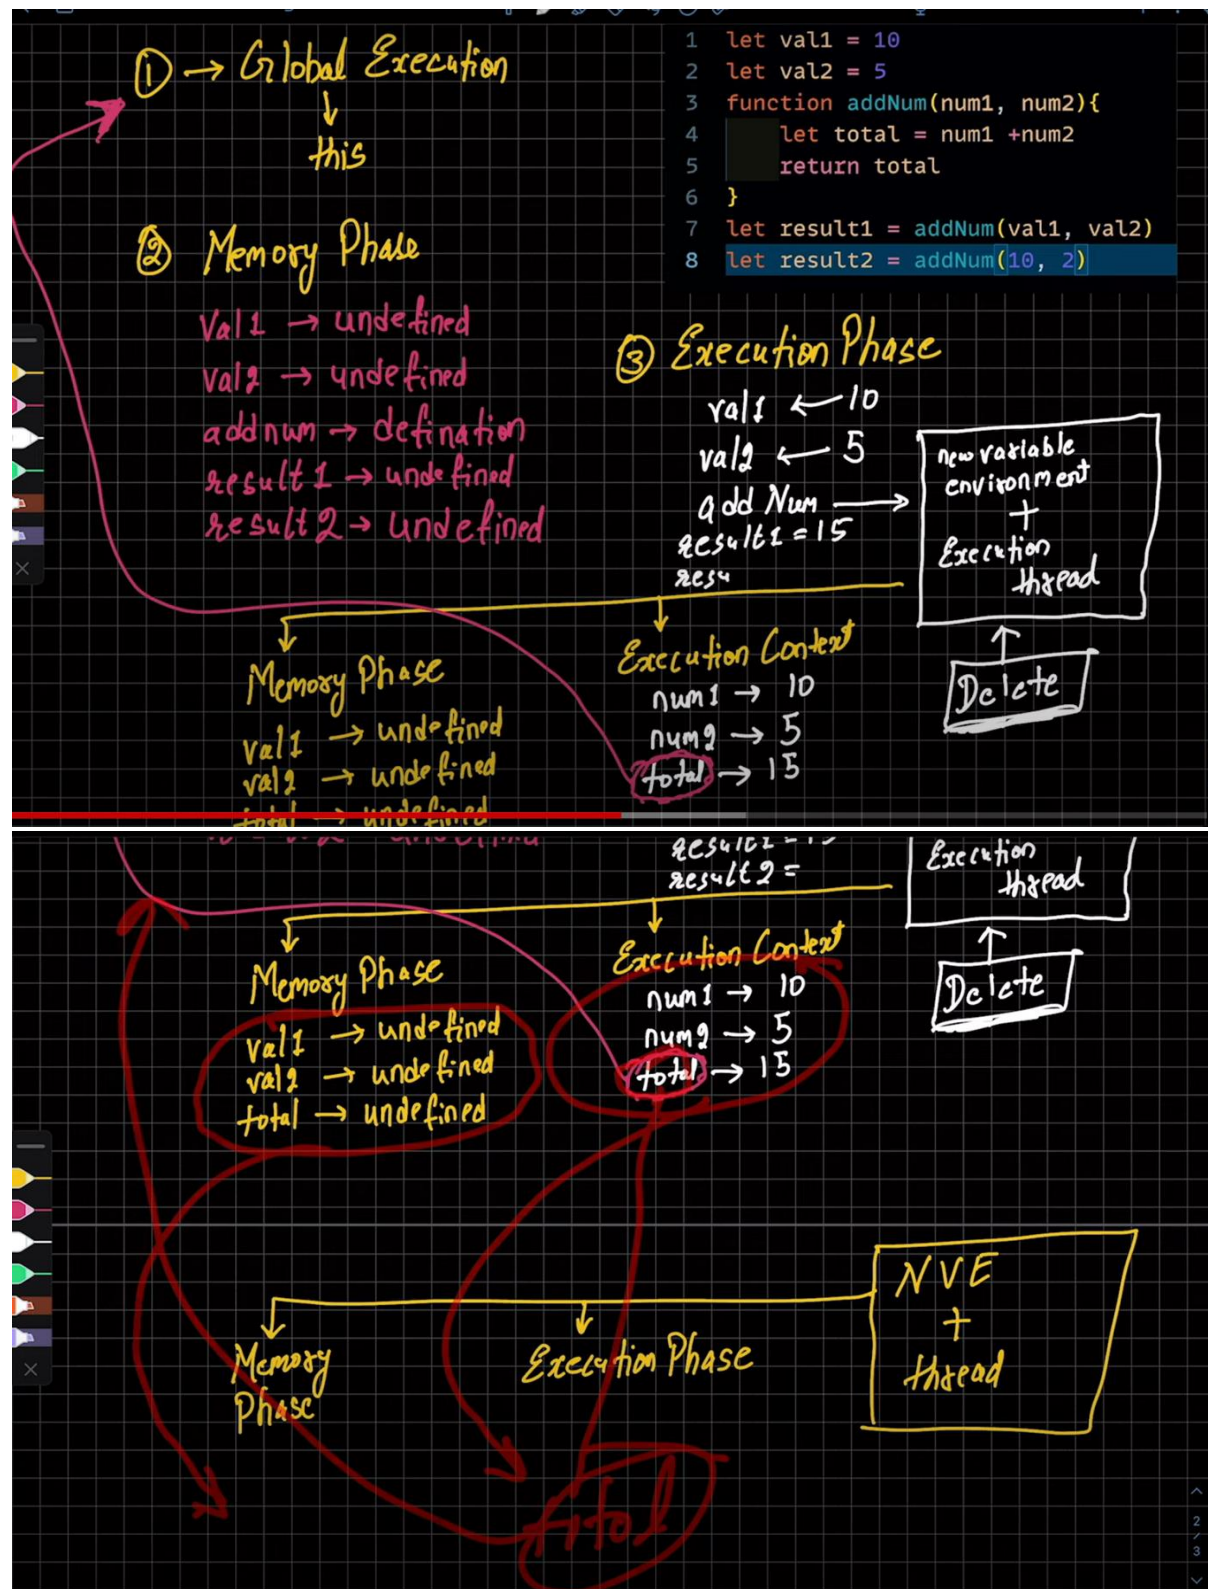 ① → Global Execution
↓
this
1 let val1 = 10
2 let val2 = 5
3 function addNum(num1, num2){
4 let total = num1 +num2
5 return total
6 }
7 let result1 = addNum(val1, val2)
8 let result2 = addNum(10, 2)
② Memory Phase
val1 → undefined
val2 → undefined
addnum → defination
result1 → undefined
result2 → undefined
③ Execution Phase
val1 ← 10
val2 ← 5
add Num →
result1 = 15
resu
new variable
environment
+
Execution
thread
Delete
Memory Phase
val1 → undefined
val2 → undefined
total → undefined
Execution Context
num1 → 10
num2 → 5
total → 15
result1 = 15
result2 =
Execution
thread
Delete
Memory Phase
val1 → undefined
val2 → undefined
total → undefined
Execution Context
num1 → 10
num2 → 5
total → 15
NVE
+
thread
Memory
Phase
Execution Phase
total
2
/
3